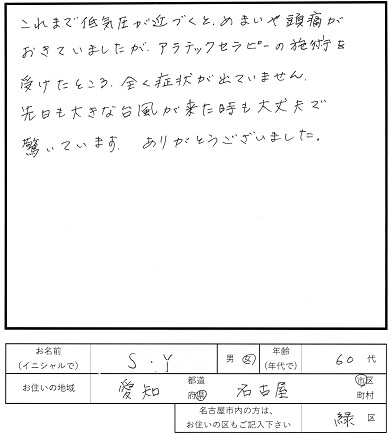 これまで低気圧が近づくと、めまいや頭痛が
おきていましたが、アラテックセラピーの施術を
受けたところ、全く症状が出ていません。
先日も大きな台風が来た時も大丈夫で
驚いています。 ありがとうございました。
お名前 (イニシャルで) S.Y 男 女 年齢 (年代で) 60代
お住いの地域 愛知 都道府県 名古屋 市区町村
名古屋市内の方は、お住いの区もご記入下さい 緑区